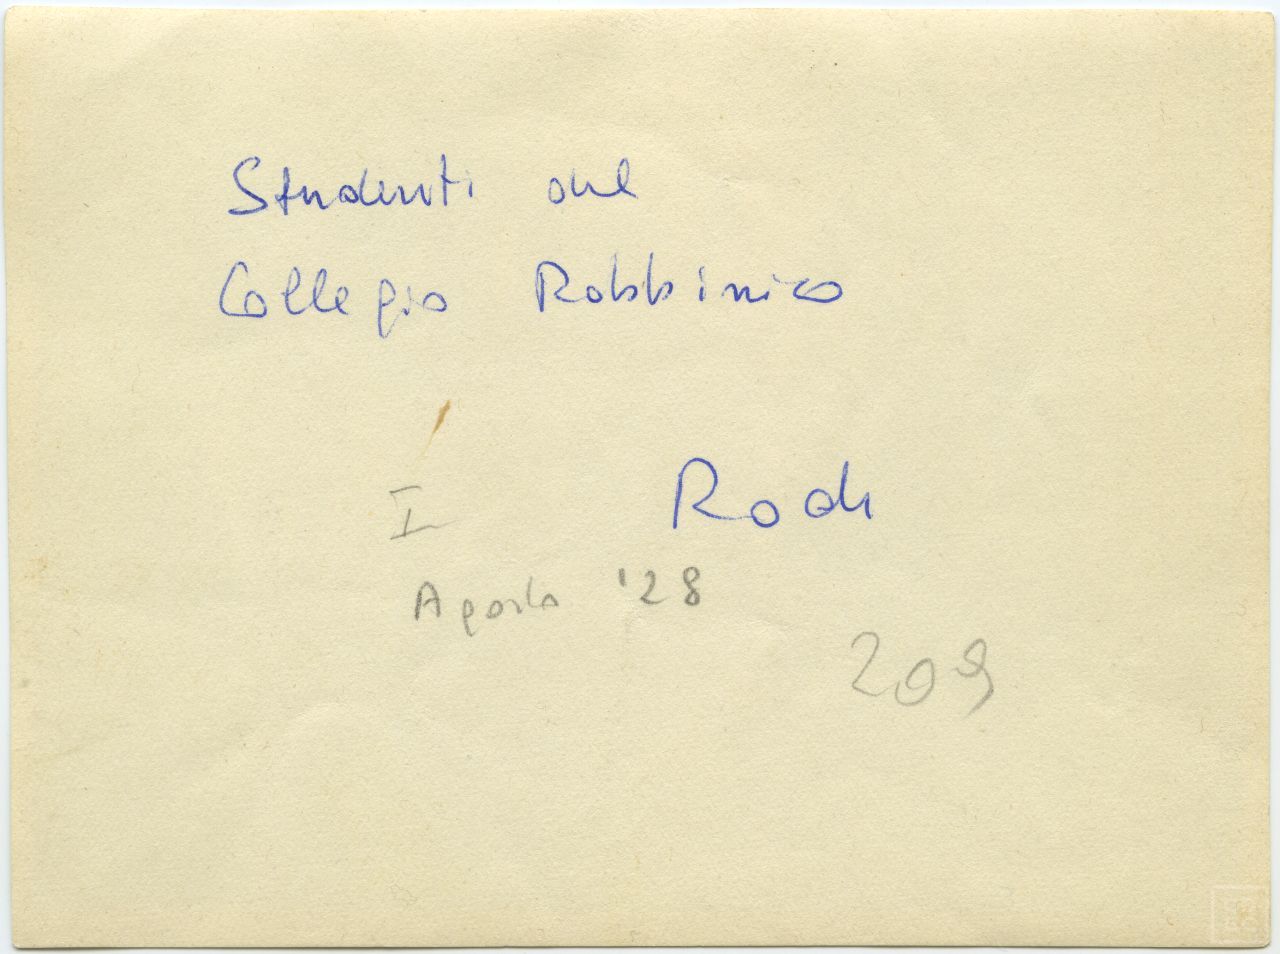 Studenti del
Collegio Rabbinico
Rodi
I
Agosto '28
209